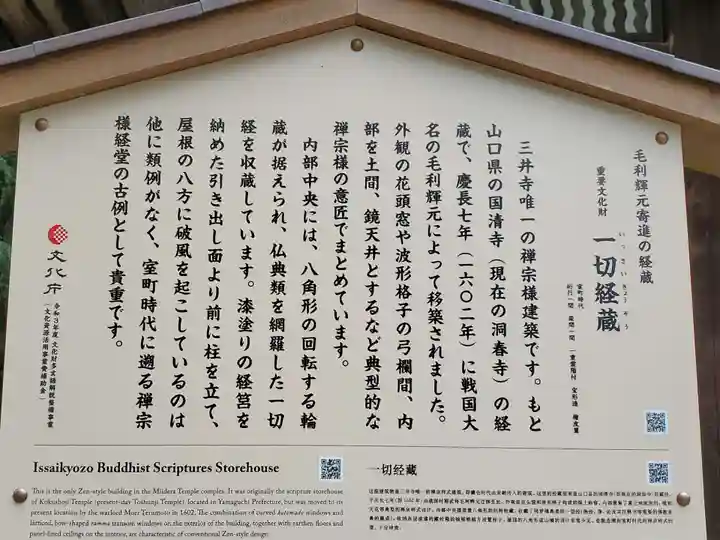 毛利輝元寄進の経蔵
重要文化財
一切経蔵
いっさいきょうぞう
室町時代
桁行一間 梁間一間 一重裳階付 宝形造 檜皮葺
三井寺唯一の禅宗様建築です。もと
山口県の国清寺（現在の洞春寺）の経
蔵で、慶長七年（一六〇二年）に戦国大
名の毛利輝元によって移築されました。
外観の花頭窓や波形格子の弓欄間、内
部を土間、鏡天井とするなど典型的な
禅宗様の意匠でまとめています。
内部中央には、八角形の回転する輪
蔵が据えられ、仏典類を網羅した一切
経を収蔵しています。漆塗りの経筥を
納めた引き出し面より前に柱を立て、
屋根の八方に破風を起こしているのは
他に類例がなく、室町時代に遡る禅宗
様経堂の古例として貴重です。
文化庁
令和3年度 文化財多言語解説整備事業
（文化資源活用事業費補助金）
Issaikyozo Buddhist Scriptures Storehouse
This is the only Zen-style building in the Miidera Temple complex. It was originally the scripture storehouse
of Kokushoji Temple (present-day Toshunji Temple), located in Yamaguchi Prefecture, but was moved to its
present location by the warlord Mori Terumoto in 1602. The combination of curved katomado windows and
latticed, bow-shaped ramma transom windows on the exterior of the building, together with earthen floors and
panel-lined ceilings on the interior, are characteristic of conventional Zen-style design.
一切经藏